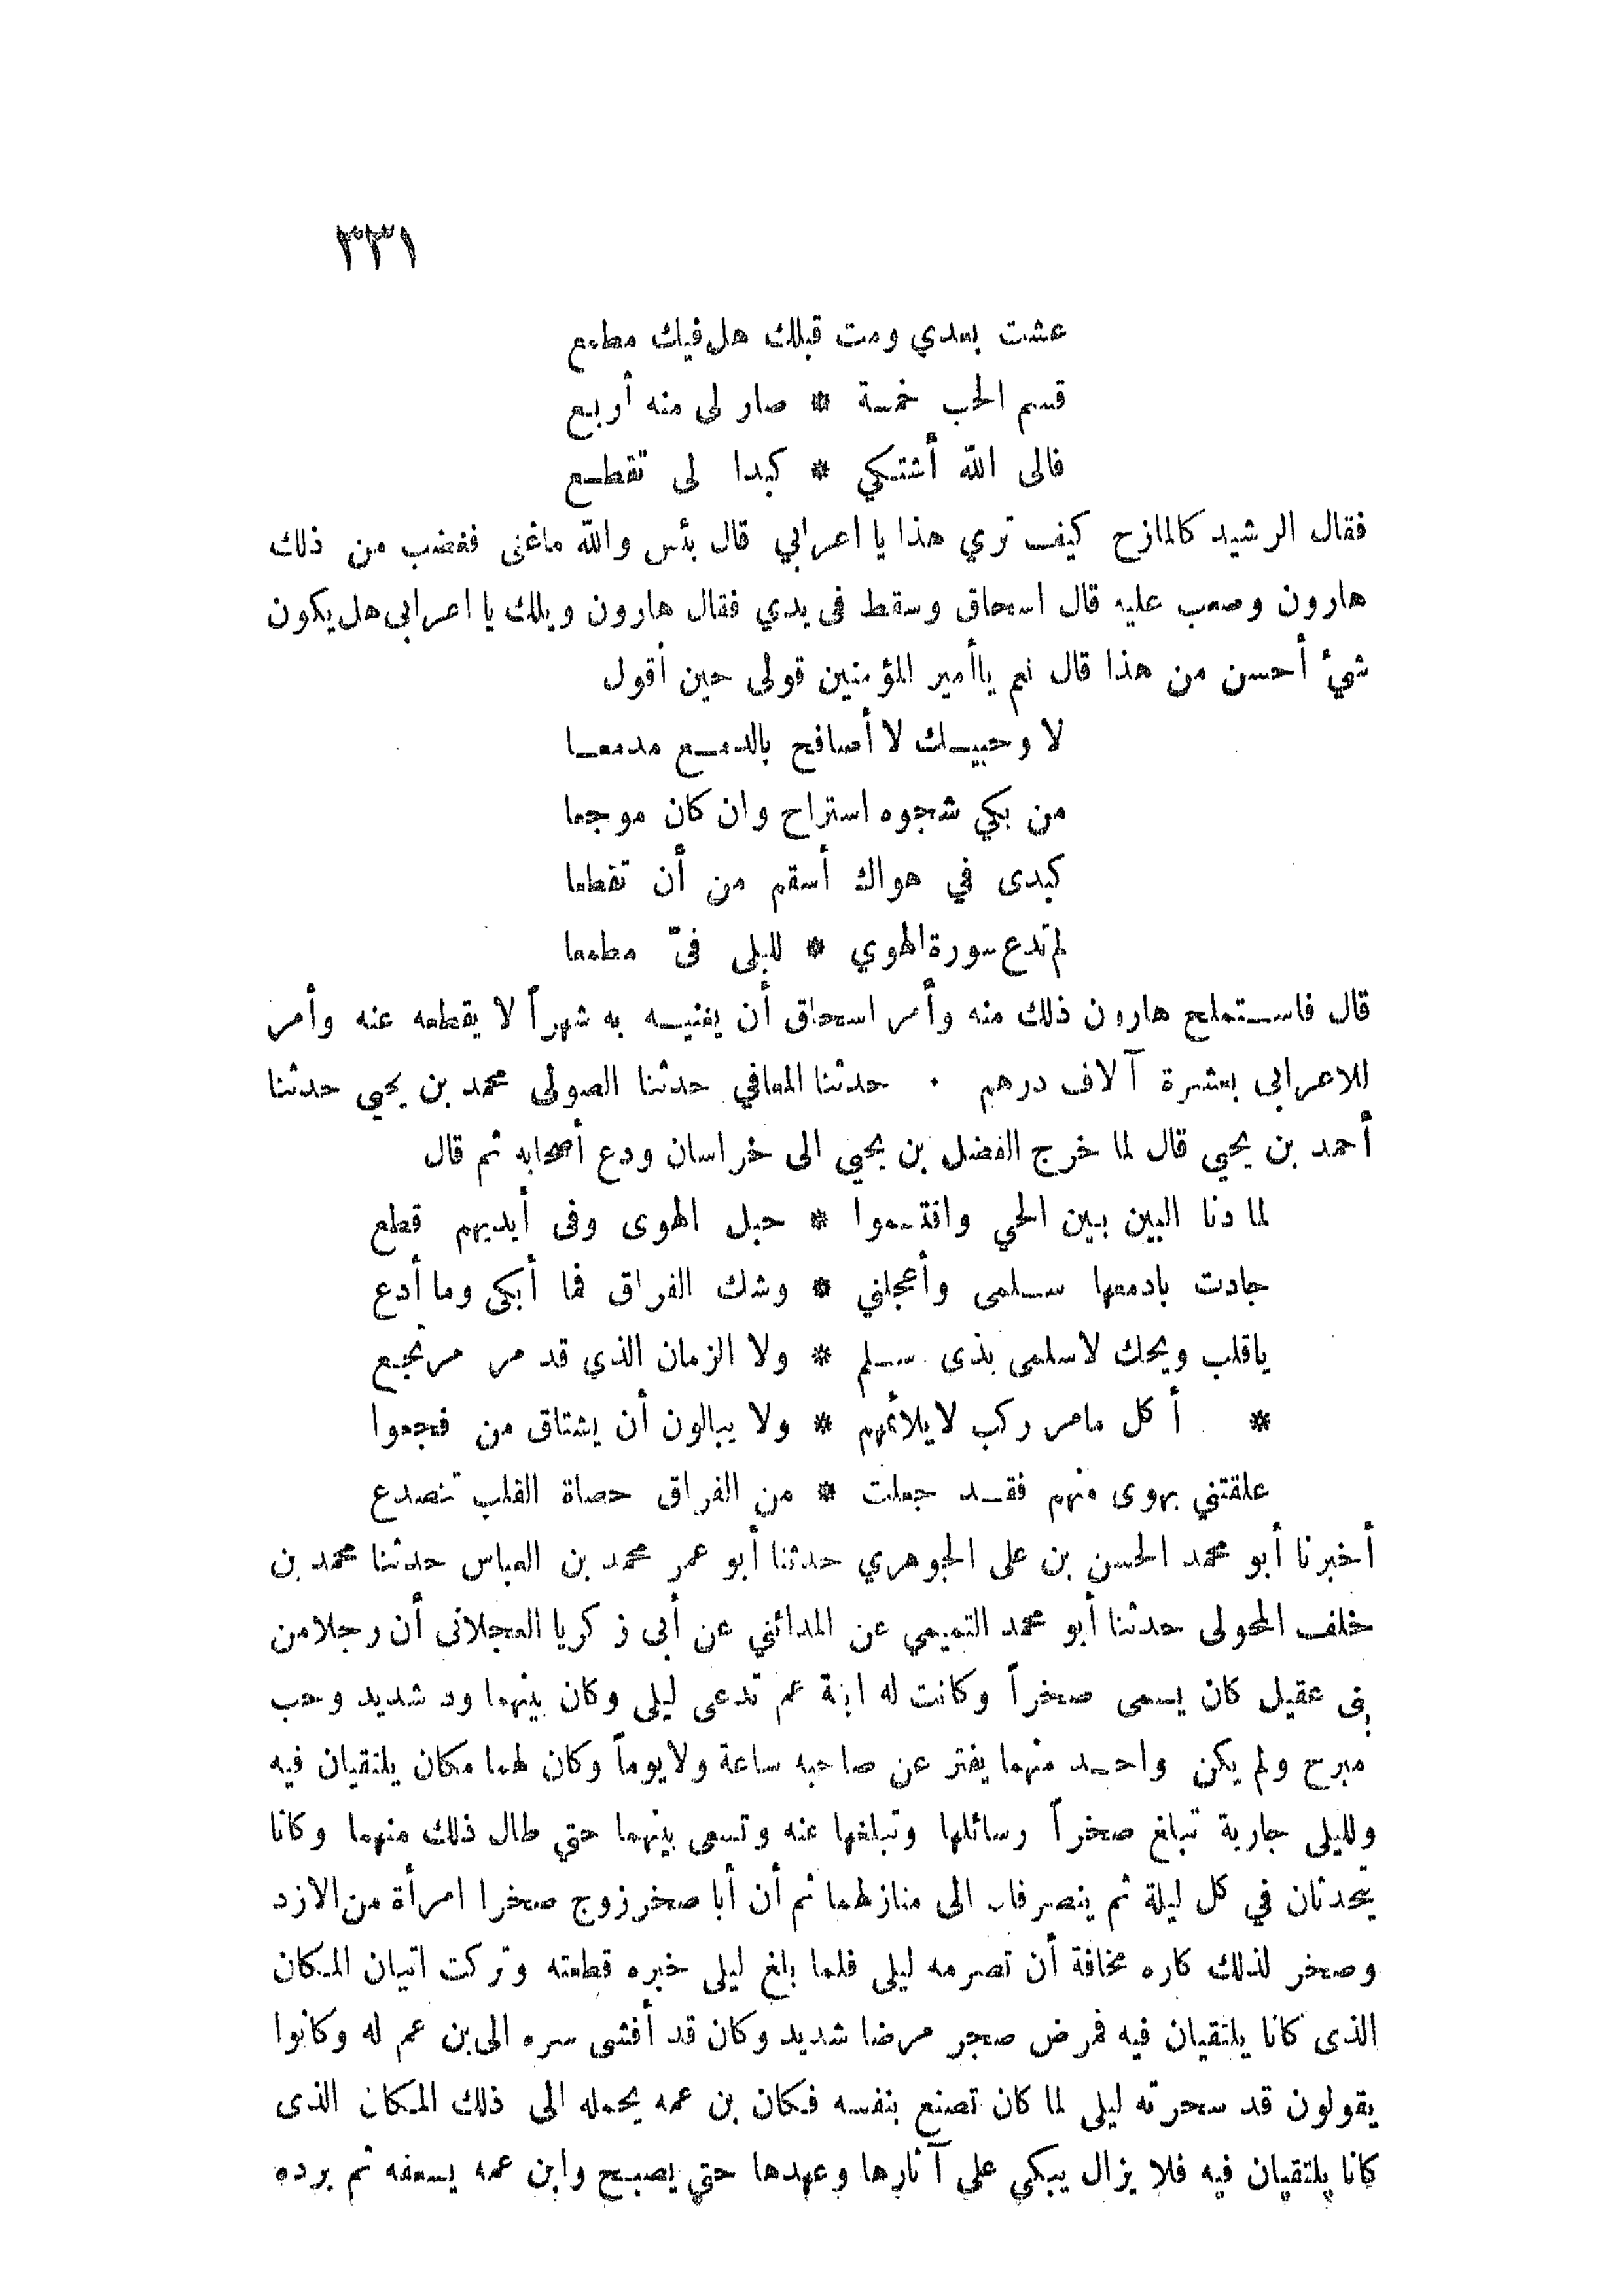 ٣٣١
عشت بعدي ومت قبلك هل فيك مطمع
قسم الحب خمسة * صار لى منه أربع
فالى الله أشتكي * كبدا لى تقطع
فقال الرشيد كالمازح كيف تري هذا يا اعرابي قال بئس والله ماغنى فغضب من ذلك
هارون وصعب عليه قال اسحاق وسقط فى يدي فقال هارون ويلك يا اعرابى هل يكون
شئ أحسن من هذا قال نعم ياأمير المؤمنين قولى حين أقول
لا وحبيك لا أصافح بالدمع مدمعا
من بكي شجوه استراح وان كان موجعا
كبدى في هواك أسقم من أن تقطعا
لم تدع سورة الهوي * للبلى فىّ مطمعا
قال فاستملح هارون ذلك منه وأمر اسحاق أن يغنيه به شهراً لا يقطعه عنه وأمر
للاعرابى بعشرة آلاف درهم . حدثنا المعافي حدثنا الصولى محمد بن يحيى حدثنا
أحمد بن يحيى قال لما خرج الفضل بن يحيى الى خراسان ودع أصحابه ثم قال
لما دنا البين بين الحي واقتسموا * حبل الهوى وفى أيديهم قطع
جادت بادمعها سلمى وأعجلني * وشك الفراق فما أبكى وما أدع
ياقلب ويحك لاسلمى بذى سلم * ولا الزمان الذي قد مر مرتجع
* أكل مامر ركب لايلائمهم * ولا يبالون أن يشتاق من فجعوا
علقتني بهوى منهم فقد جعلت * من الفراق حصاة القلب تنصدع
أخبرنا أبو محمد الحسن بن على الجوهري حدثنا أبو عمر محمد بن العباس حدثنا محمد بن
خلف المحولى حدثنا أبو محمد التميمي عن المدائني عن أبى زكريا العجلانى أن رجلا من
بنى عقيل كان يسمى صخراً وكانت له ابنة عم تدعى ليلى وكان بينهما ود شديد وحب
مبرح ولم يكن واحد منهما يفتر عن صاحبه ساعة ولايوماً وكان لهما مكان يلتقيان فيه
ولليلى جارية تبلغ صخراً رسائلها وتبلغها عنه وتسعى بينهما حتي طال ذلك منهما وكانا
يتحدثان في كل ليلة ثم ينصرفان الى منازلهما ثم أن أبا صخر زوج صخرا امرأة من الازد
وصخر لذلك كاره مخافة أن تصرمه ليلى فلما بلغ ليلى خبره قطعته وتركت اتيان المكان
الذى كانا يلتقيان فيه فمرض صجر مرضا شديد وكان قد أفشى سره الى بن عم له وكانوا
يقولون قد سحرته ليلى لما كان تصنع بنفسه فكان بن عمه يحمله الى ذلك المكان الذى
كانا يلتقيان فيه فلا يزال يبكي علي آثارها وعهدها حتي يصبح وابن عمه يسعفه ثم برده